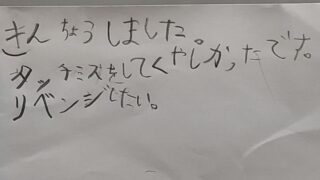 きんちょうしました。
タッチミズをしてくやしかったです。
リベンジしたい。